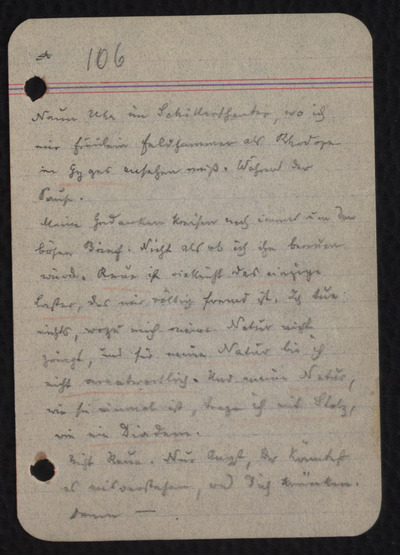 106
Neun Uhr im Schillertheater, wo ich
mir Fräulein Feldhammer als Rhodope
in Gyges ansehen muß. Während der
Pause.
Meine Gedanken kreisen noch immer um den
bösen Brief. Nicht als ob ich ihn bereuen
würde. Reue ist vielleicht das einzige
Laster, das mir völlig fremd ist. Ich tue
nichts, wozu mich meine Natur nicht
zwingt, und für meine Natur bin ich
nicht verantwortlich. Und meine Natur,
wie sie einmal ist, trage ich mit Stolz,
wie ein Diadem.
Nicht Reue. Nur Angst, Du könntest
es missverstehen, und Dich kränken.
Denn —